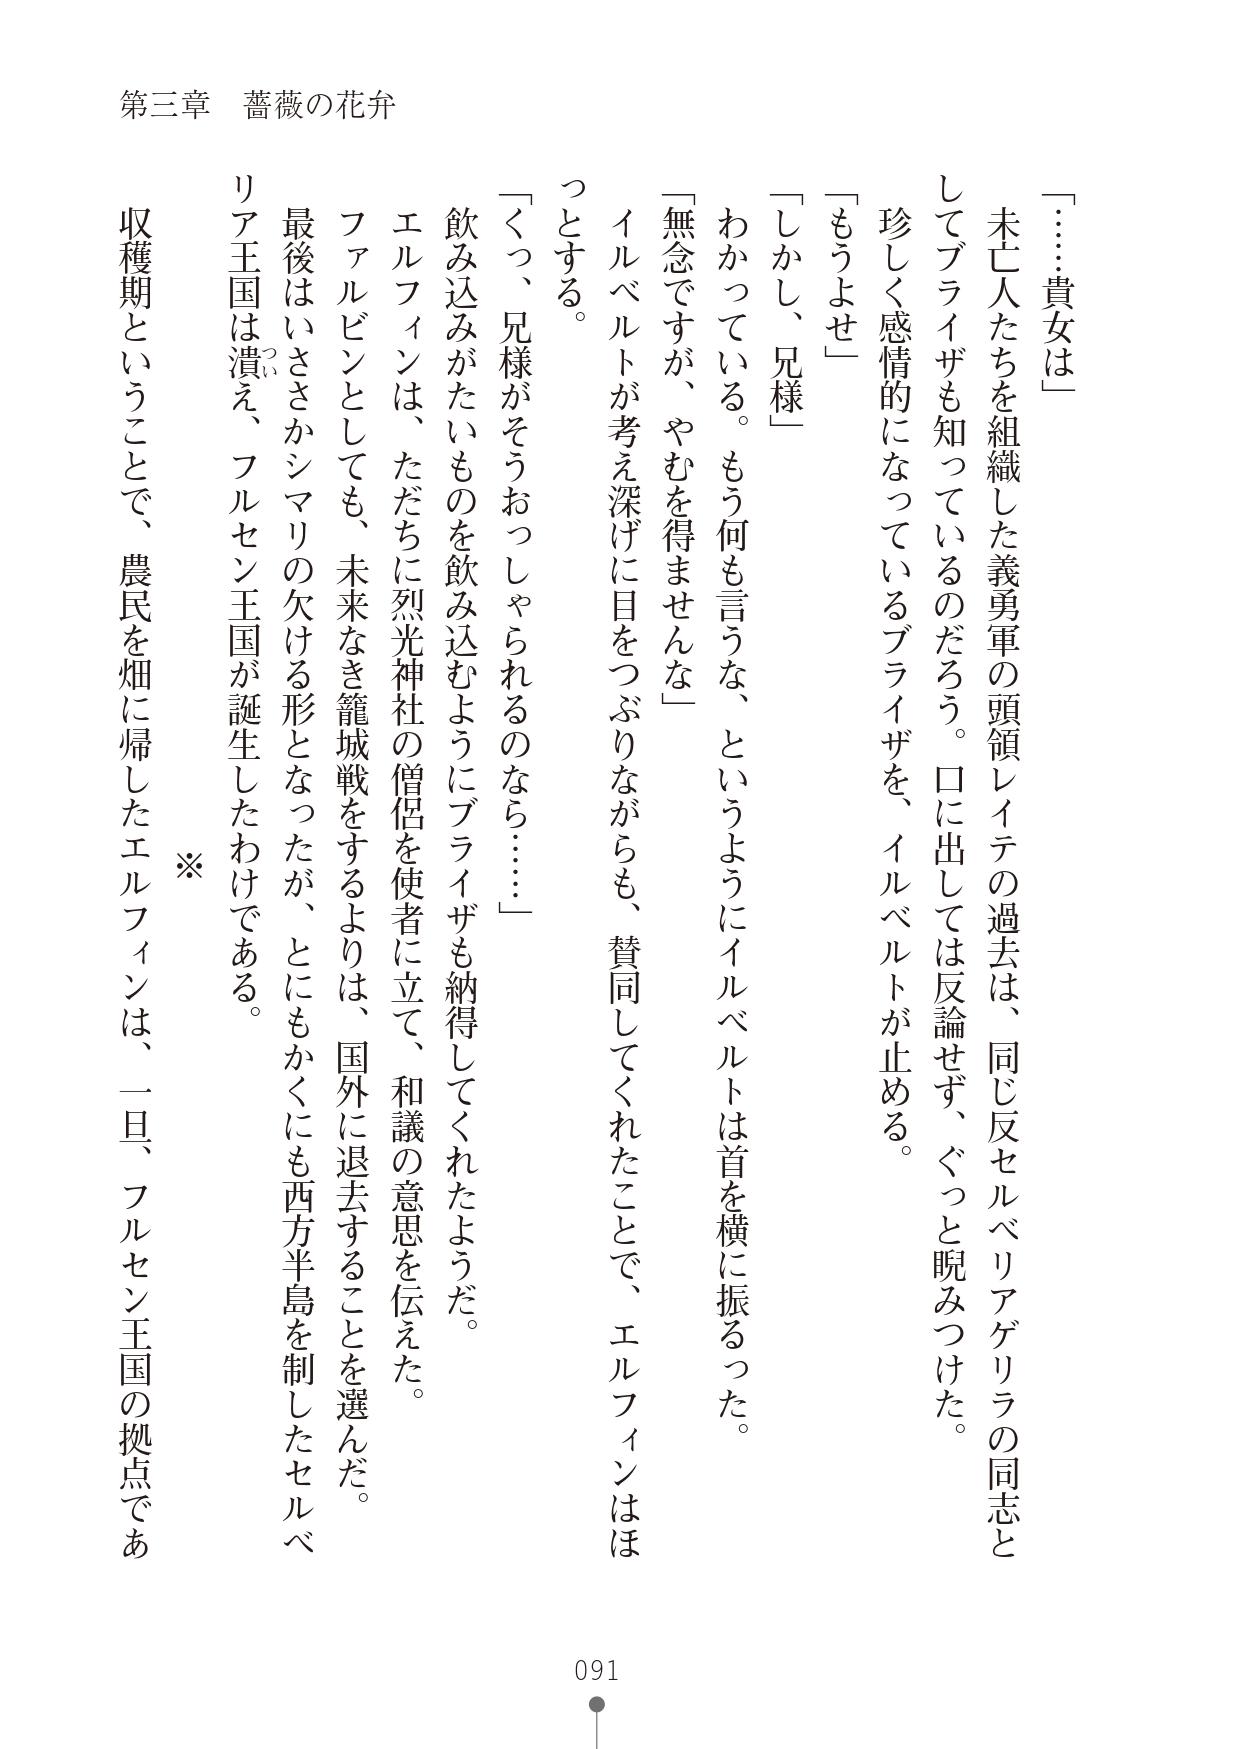 第三章　薔薇の花弁
「……貴女は」
　未亡人たちを組織した義勇軍の頭領レイテの過去は、同じ反セルベリアゲリラの同志と
してブライザも知っているのだろう。口に出しては反論せず、ぐっと睨みつけた。
　珍しく感情的になっているブライザを、イルベルトが止める。
「もうよせ」
「しかし、兄様」
　わかっている。もう何も言うな、というようにイルベルトは首を横に振るった。
「無念ですが、やむを得ませんな」
　イルベルトが考え深げに目をつぶりながらも、賛同してくれたことで、エルフィンはほ
っとする。
「くっ、兄様がそうおっしゃられるのなら……」
　飲み込みがたいものを飲み込むようにブライザも納得してくれたようだ。
　エルフィンは、ただちに烈光神社の僧侶を使者に立て、和議の意思を伝えた。
　ファルビンとしても、未来なき籠城戦をするよりは、国外に退去することを選んだ。
　最後はいささかシマリの欠ける形となったが、とにもかくにも西方半島を制したセルベ
リア王国は潰え、フルセン王国が誕生したわけである。
つい
※
　収穫期ということで、農民を畑に帰したエルフィンは、一旦、フルセン王国の拠点であ
091